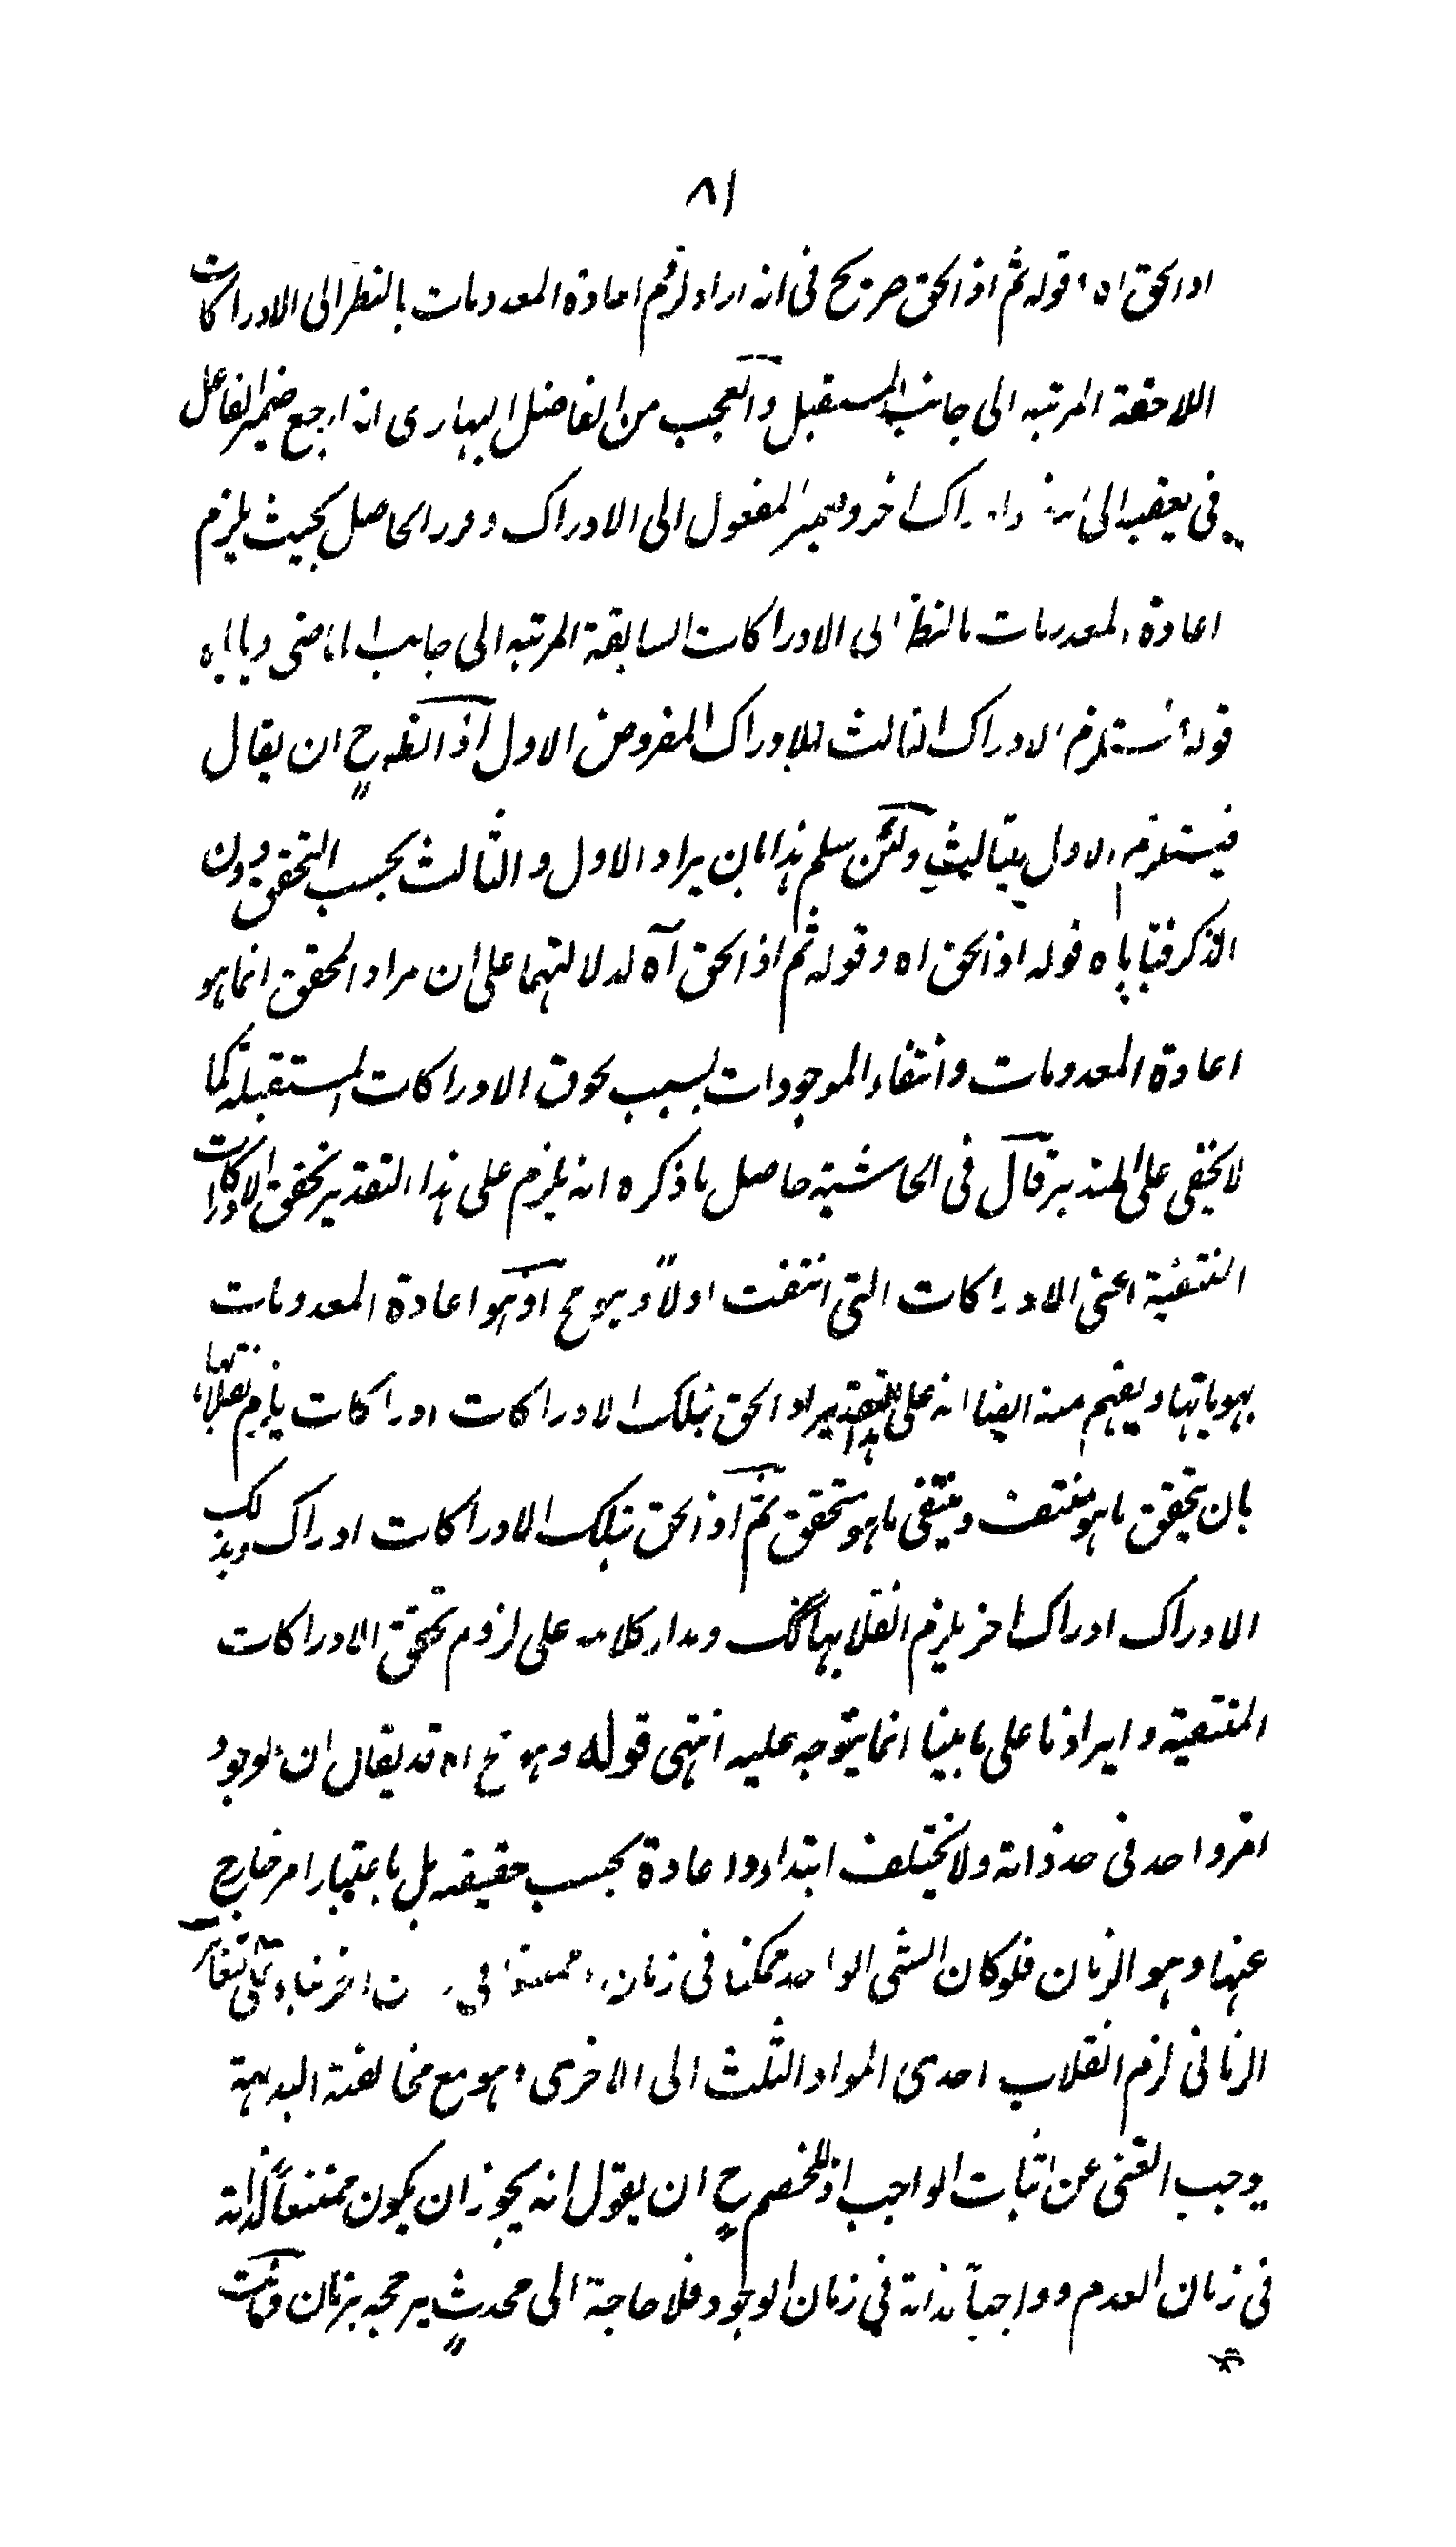 ٨١
اذ الحق اه وقوله ثم اذ الحق صريح فى انه اراد لزوم اعادة المعدومات بالنظر الى الادراكات
اللاحقة المرتبه الى جانب المستقبل والعجب من الفاضل البهارى انه ارجع ضمير الفاعل
فى يعقبه الى ادراك اخر وضمير المفعول الى الادراك وقرر الحاصل بحيث يلزم
اعادة المعدومات بالنظر الى الادراكات السابقة المرتبه الى جانب الماضى وياباه
قوله فيستلزم الادراك الثالث للادراك المفروض الاول اذ الظ ح ان يقال
فيستلزم الاول بثالث ولئن سلم هذا بان يراد الاول والثالث بحسب التحقق دون
الذكر فتاباه قوله اذ الحق اه وقوله ثم اذ الحق آه لدلالتهما على ان مراد المحقق انما هو
اعادة المعدومات وانتفاء الموجودات بسبب لحوق الادراكات المستقبلة كما
لا يخفى على المتدبر قال فى الحاشية حاصل ما ذكره انه يلزم على هذا التقدير تحقق الادراكات
المنتفية اعنى الادراكات التى انتفت اولاً وهو مح اذ هو اعادة المعدومات
بهوياتها ويفهم منه ايضا انه على هذا التقدير لو الحق بتلك الادراكات ادراكات يلزم انقلابها
بان يتحقق ما هو منتف وينتفى ما هو متحقق ثم اذ الحق بتلك الادراكات ادراك وبذلك
الادراك ادراك اخر يلزم انقلابها كك ومدار كلامه على لزوم تحقق الادراكات
المنتفية وايرادنا على ما بينا انما يتوجه عليه انتهى قوله وهو مح اه قد يقال ان الوجود
امر واحد فى حد ذاته ولا يختلف ابتداء واعادة بحسب حقيقته بل باعتبار امر خارج
عنها وهو الزمان فلو كان الشى الواحد ممكنا فى زمان وممتنعا فى اخر بناء على تغاير
الزمانى لزم انقلاب احدى المواد الثلث الى الاخرى وهو مع مخالفة البديهة
يوجب الغنى عن اثبات الواجب اذ للخصم ح ان يقول انه يجوز ان يكون ممتنعاً لذاته
فى زمان العدم وواجباً لذاته فى زمان الوجود فلا حاجة الى محدث يرجحه بزمان